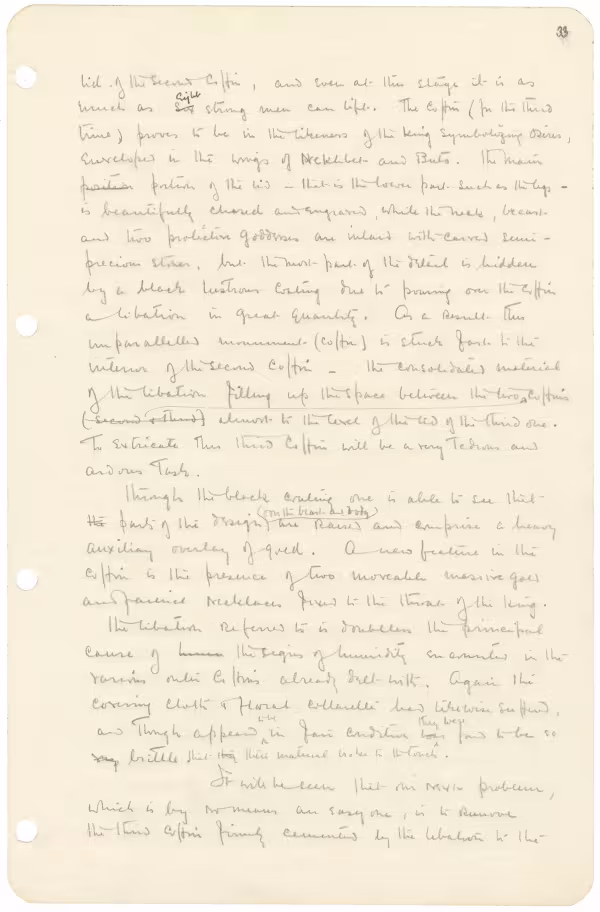 33
lid of the Second Coffin, and even at this stage it is as
much as Eight strong men can lift. The Coffin (for the third
time) proves to be in the likeness of the King symbolizing Osiris,
enveloped in the wings of Nekhbet and Buto. The main
position portion of the lid – that is the lower part such as the legs –
is beautifully chased and engraved, while the neck, breast
and two protective Goddesses are inlaid with carved semi-
precious stones, but the most part of the detail is hidden
by a black lustrous coating due to pouring over the Coffin
a libation in great quantity. As a result this
unparalleled monument (coffin) is stuck fast to the
interior of the Second Coffin – the consolidated material
of the libation filling up the space between the two Coffins
(Second & Third) almost to the level of the lid of the third one.
To extricate this third Coffin will be a very tedious and
arduous task.
Through the black coating one is able to see that
parts of the design (on the breast and body) are raised and comprise a heavy
auxiliary overlay of gold. A new feature in the
Coffin is the presence of two moveable massive gold
and faience necklaces fixed to the throat of the King.
The libation referred to is doubtless the principal
cause of the signs of humidity encounted in the
various outer Coffins already delt with. Again the
covering cloth & floral collarette had likewise suffered,
and though appeared in fair condition they were found to be so
brittle that their material broke to the touch.
It will be seen that our next problem,
which is by no means an easy one, is to remove
the third Coffin firmly cemented by the libation to the